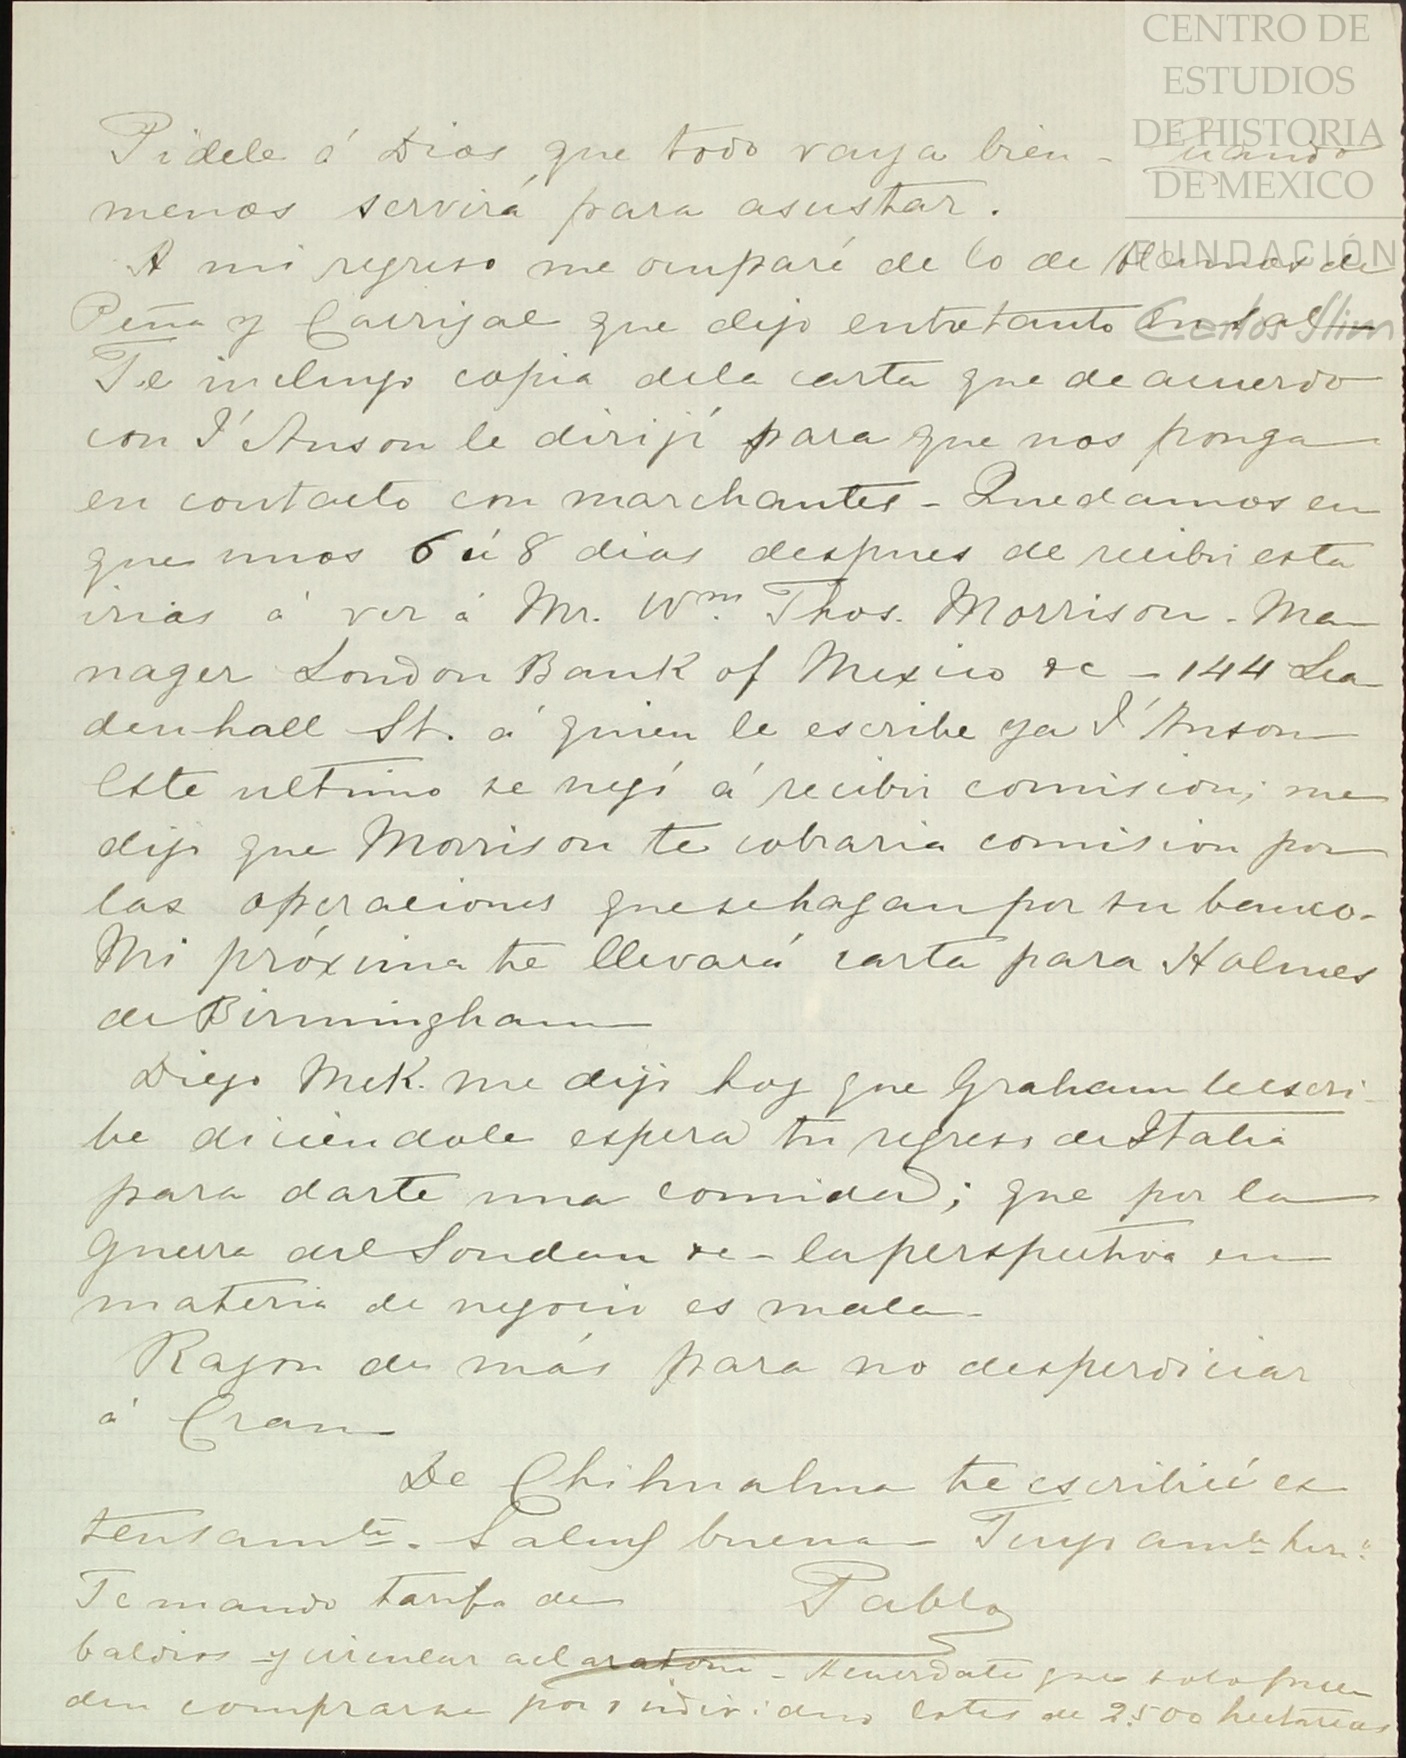 CENTRO DE
ESTUDIOS
DE HISTORIA
DE MEXICO
FUNDACIÓN
Carlos Slim
Pidele á Dios que todo vaya bien - cuando
menos servirá para asustar.
A mi regreso me ocuparé de lo de de
Peña y que dejo entretanto
Te incluyo copia dela carta que de acuerdo
con I'Anson le dirijí para que nos ponga
en contacto con marchantes - Quedamos en
que unos 6 ú 8 dias despues de recibir esta
irias á ver á Mr. Wm. Thos. Morrison - Ma
nager London Bank of Mexico &c - 144 Lea
denhall St. á quien le escribe ya I'Anson
Este ultimo se negó á recibir comision; me
dijo que Morrison te cobraria comision por
las operaciones que se hagan por su banco -
Mi próxima te llevará carta para Holmes
de Birmingham
Diego McK. me dijo hoy que Graham le escri-
be diciendole espera tu regreso de Italia
para darte una comida; que por la
guerra del Soudan &c - la perspectiva en
materia de negocio es mala -
Razon de más para no desperdiciar
á Cran -
De Chihuahua te escribiré ex
tensamte. Salud buena - Tuyo amte hero.
Te mando tarifa de
Pablo
baldios - y circular aclaratoria - Acuerdate que solo pue
den comprarse por individuo lotes de 2.500 hectareas